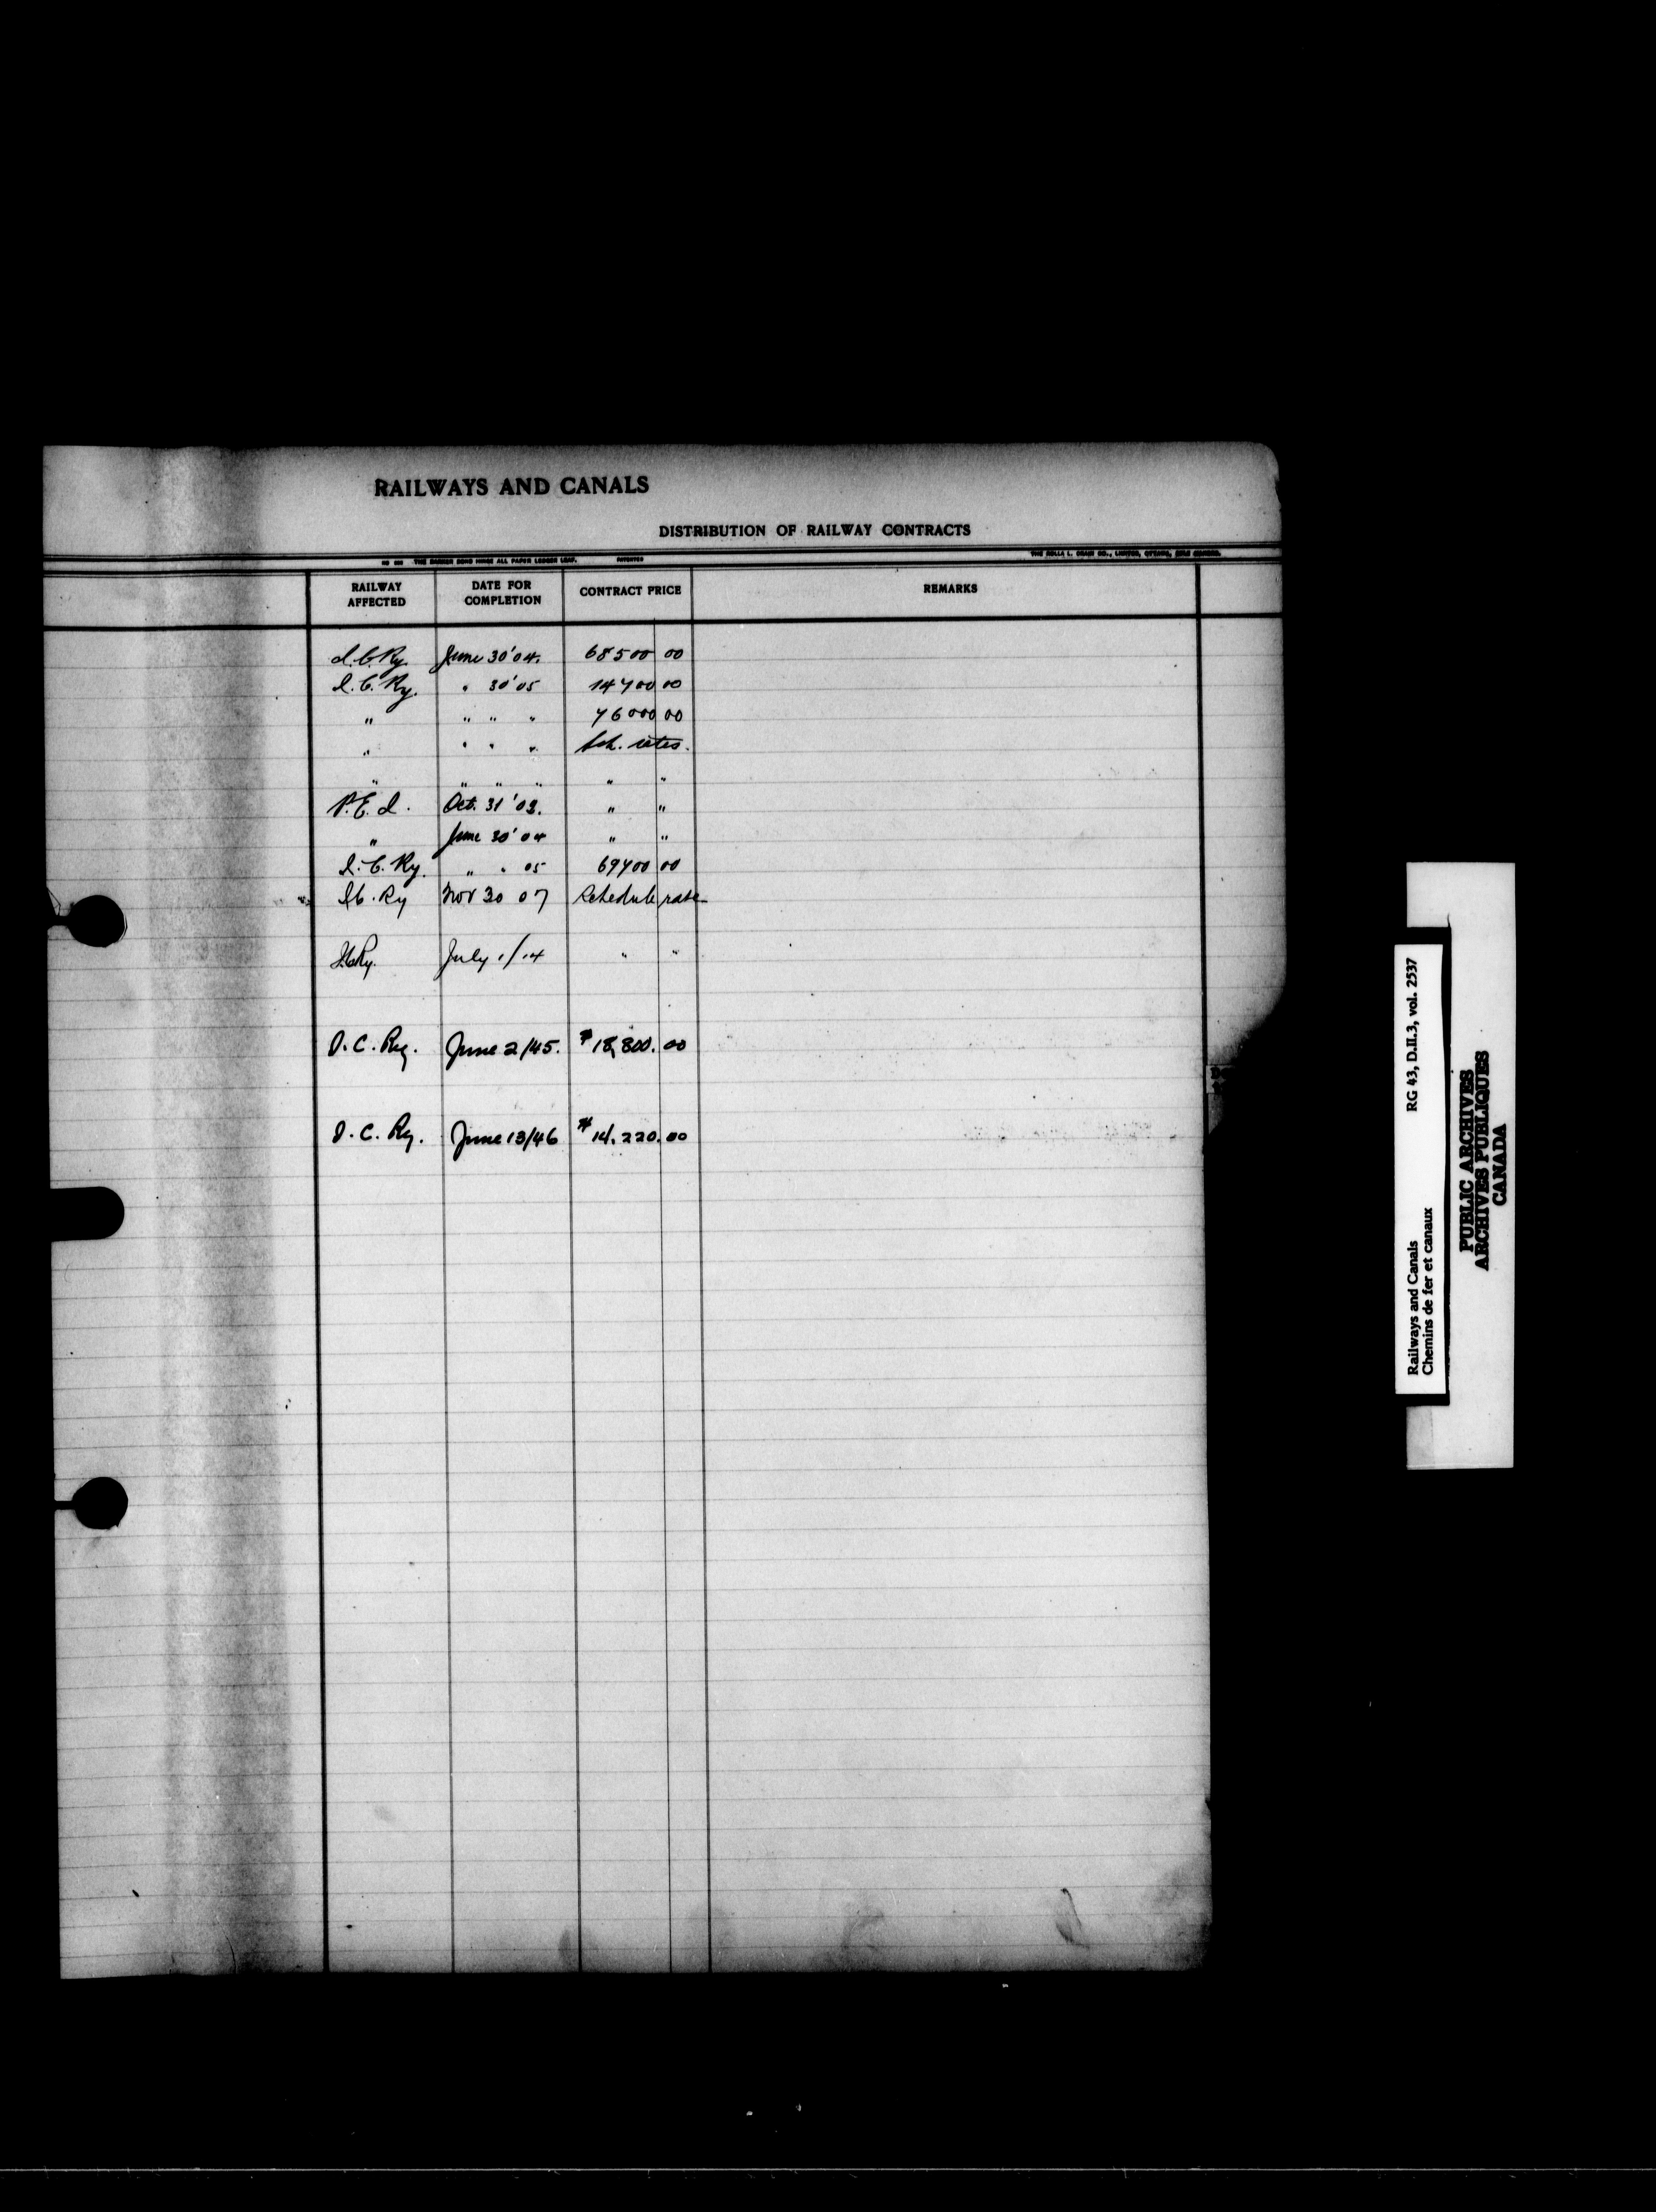 RAILWAYS AND CANALS
DISTRIBUTION OF RAILWAY CONTRACTS
THE BARBER BOND HINGE ALL PAPER LEDGER LEAF. PATENTED
RAILWAY AFFECTED DATE FOR COMPLETION CONTRACT PRICE REMARKS
I.C. Ry. June 30'04. 68500 00
I.C. Ry. " 30'05 14700 00
" " " " 76000 00
" " " " Sch. rates.
" " " " " "
P.E.I. Oct. 31 '03. " "
" June 30'04 " "
I.C. Ry. " " 05 69700 00
I.C. Ry Nov 30 07 Schedule rate
I.C. Ry. July 1/14 " "
I.C. Ry. June 2/45. $18,800. 00
I.C. Ry. June 13/46 $14.220. 00
Railways and Canals RG 43, D.II.3, vol. 2537
Chemins de fer et canaux
PUBLIC ARCHIVES
ARCHIVES PUBLIQUES
CANADA